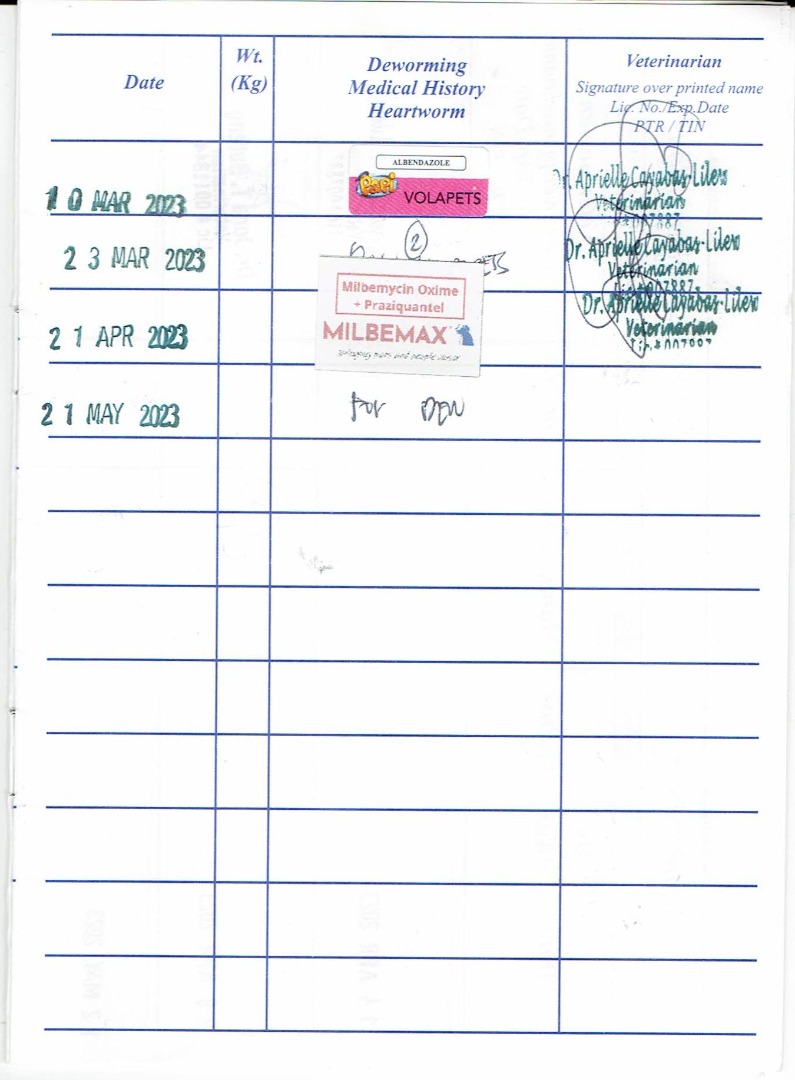 Date
Wt.
(Kg)
Deworming
Medical History
Heartworm
Veterinarian
Signature over printed name
Lic. No./Exp.Date
PTR / TIN
10 MAR 2023
ALBENDAZOLE
Papi
VOLAPETS
Dr. Aprielle Cayabas-Lilew
Veterinarian
23 MAR 2023
2
Dr. Aprielle Cayabas-Lilew
Veterinarian
Lic.#007887
21 APR 2023
Milbemycin Oxime
+ Praziquantel
MILBEMAX
bringing pets and people closer
Dr. Aprielle Cayabas-Lilew
Veterinarian
21 MAY 2023
For DEW